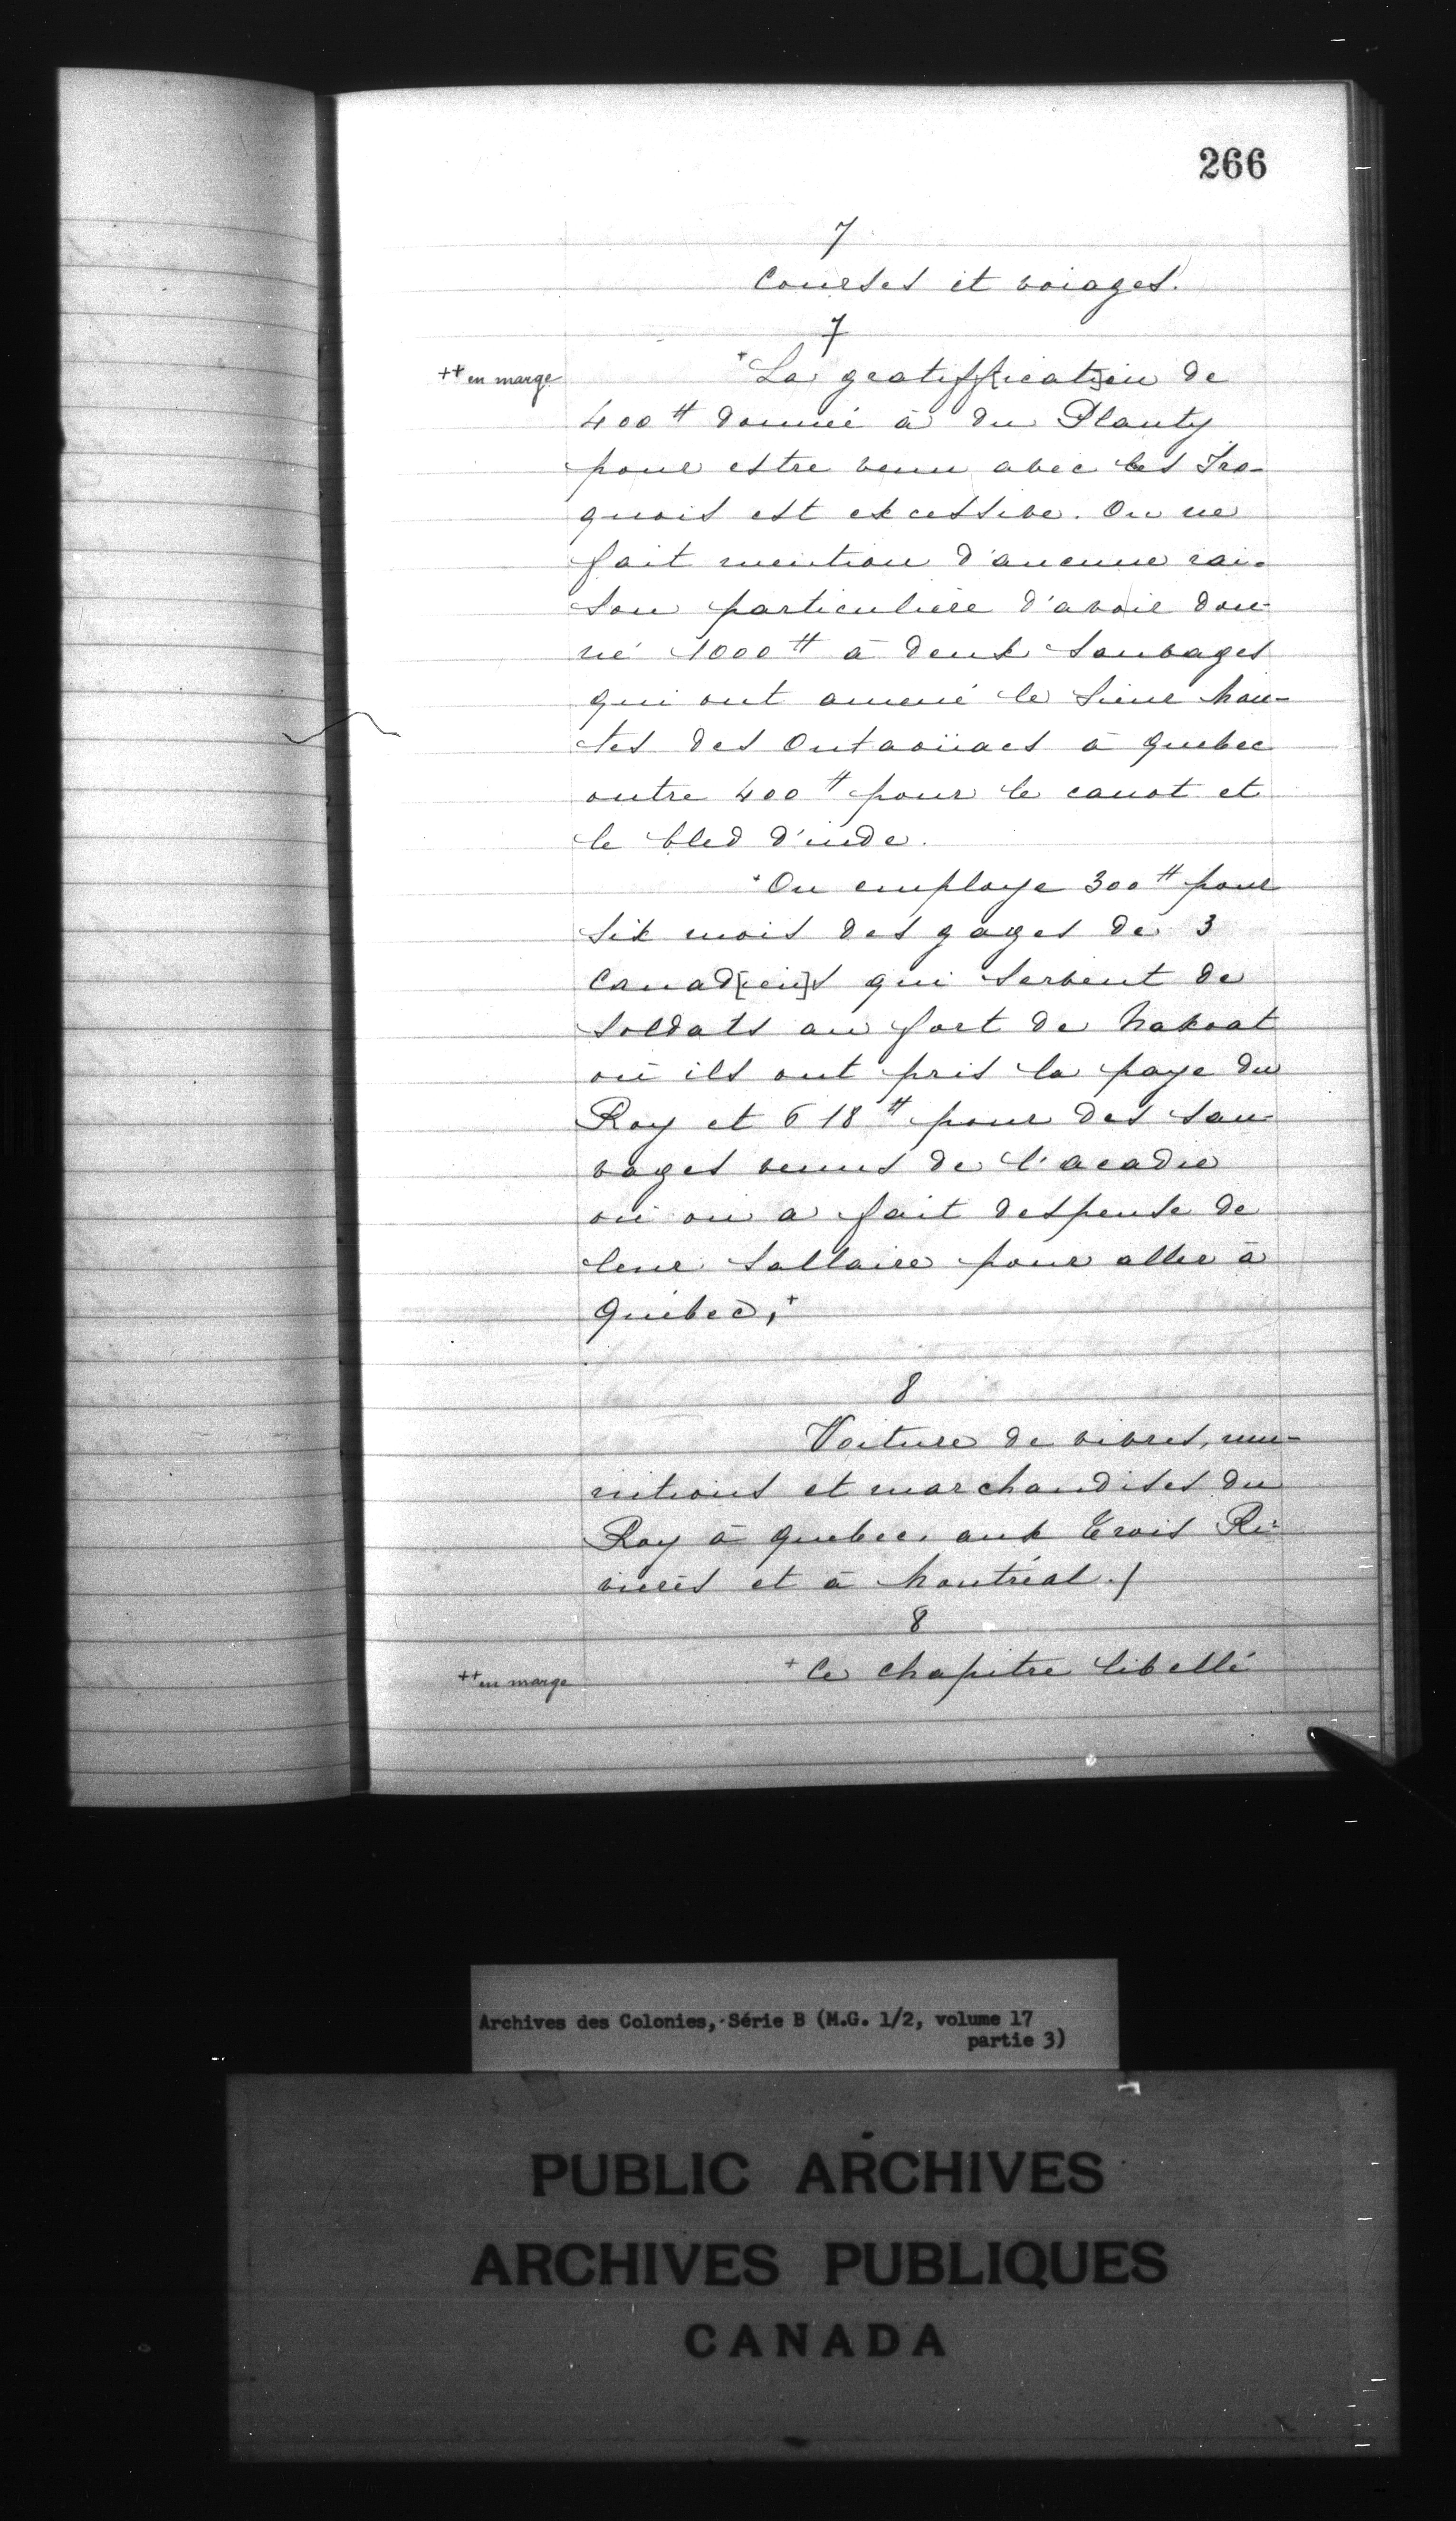 266
7
Courses et voiages.
7
++ en marge
+ La gratiff[icati]on de
400 ₶ donnée à du Planty
pour estre venu avec les Iro-
quois est excessive. On ne
fait mention d'aucune rai-
son particulière d'avoir don-
né 1000 ₶ à deux sauvages
qui ont amené le Sieur Man-
tes des Outaoüacs à Quebec
outre 400 ₶ pour le canot et
le bled d'inde.
On employe 300 ₶ pour
six mois des gages de 3
Canad[ien]s qui servent de
soldats au fort de Naxoat
où ils ont pris la paye du
Roy et 618 ₶ pour des sau-
vages venus de l'acadie
où on a fait despense de
leur sallaire pour aller à
Québec, +
8
Voiture de vivres, mu-
nitions et marchandises du
Roy à Quebec, aux Trois Ri-
vierès et à Montréal./
8
++ en marge
+ Ce chapitre libellé
Archives des Colonies, Série B (M.G. 1/2, volume 17
partie 3)
PUBLIC ARCHIVES
ARCHIVES PUBLIQUES
CANADA